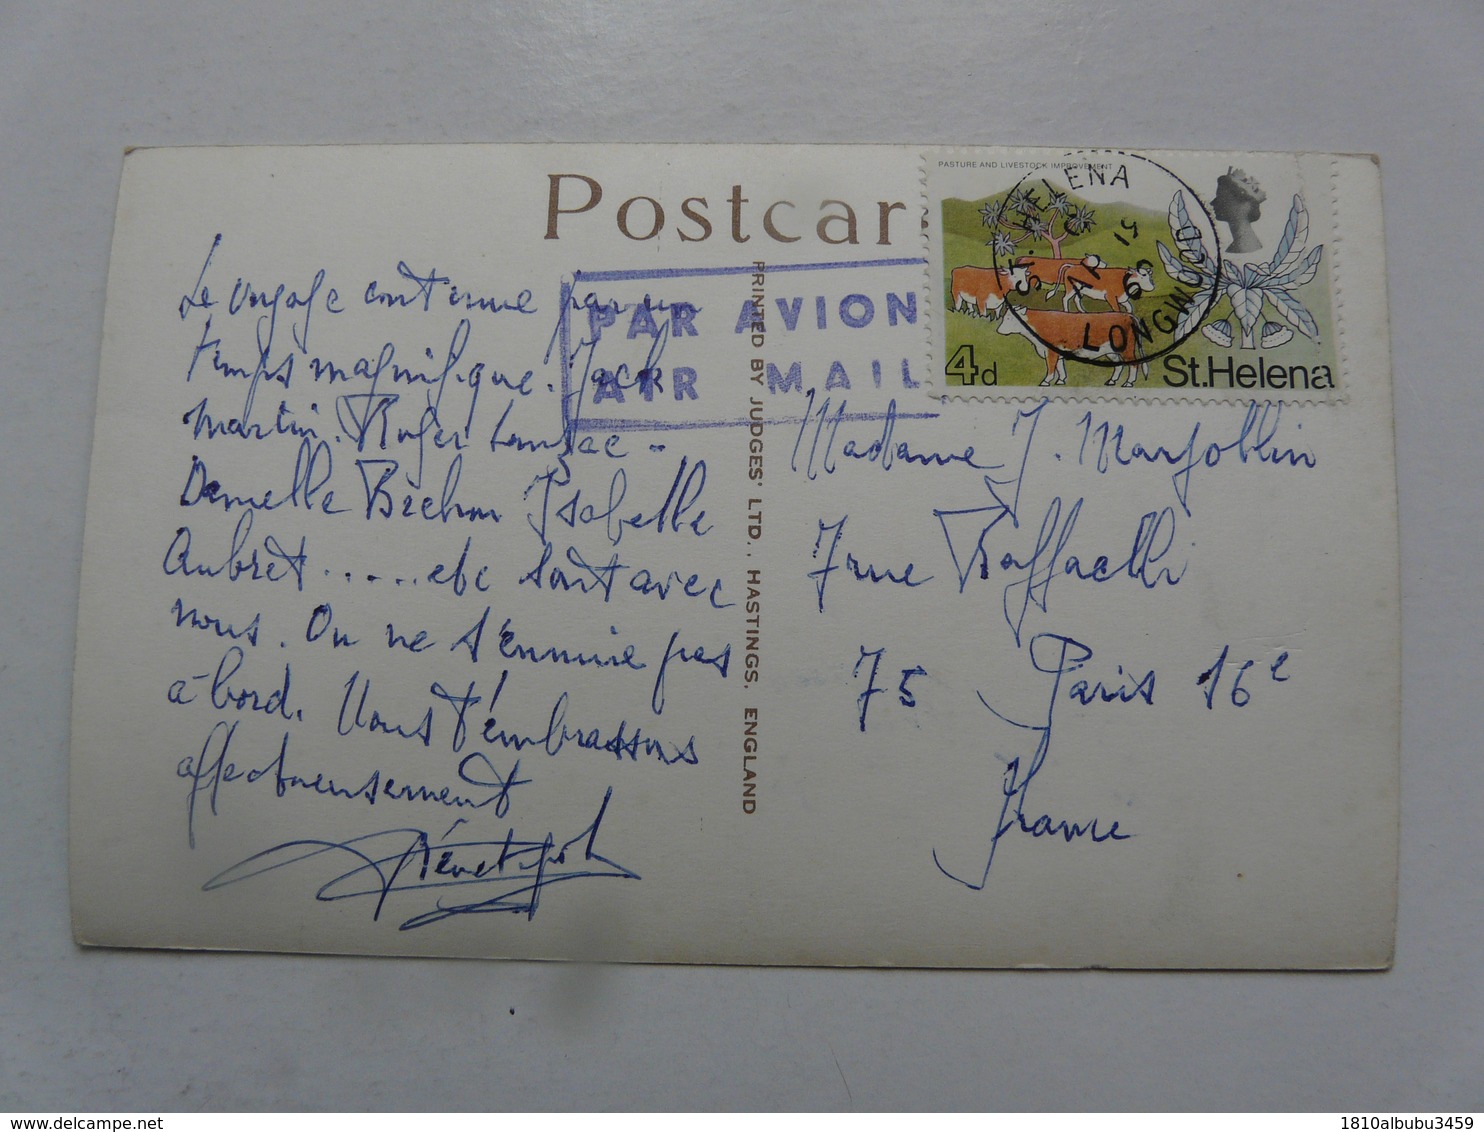 Postcar
PASTURE AND LIVESTOCK IMPROVEMENT
ST. HELENA
LONGWOOD
4d
St.Helena
PAR AVION
AIR MAIL
PRINTED BY JUDGES' LTD., HASTINGS, ENGLAND
Le voyage continue par un
temps magnifique. Jack
Martin. Roger Lanzac -
Danielle Brehm Isabelle
Aubret ..... etc sont avec
nous. On ne s'ennuie pas
à bord. Nous t'embrassons
affectueusement
Madame J. Marjollin
7 rue Raffaelli
75 Paris 16e
France
1810albubu3459